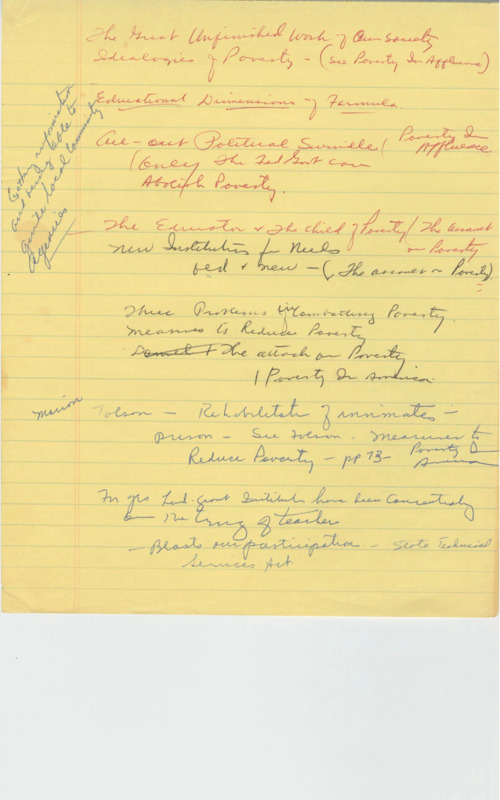 The Great Unfinished Work of Our Society
Idealogies of Poverty - (See Poverty In Affluence)
Educational Dimensions of Formula
All-out Political / Poverty In
Affluence
(Only The Fed Govt can
Abolish Poverty.
Gathering information
and being able to
guide local community
agencies
The Educator & The Child of Poverty / The assault
on Poverty
New Institutions for Needs
old & new - (The answer on Poverty)
These Problems in Combatting Poverty.
Measures to Reduce Poverty
The attack on Poverty
/ Poverty In America
Marion
Tolson - Rehabilitate of innimates -
prison - See Tolson. Measures to
Reduce Poverty - pp 73- Poverty In
America
For yrs Institutes have been Concentrating
on The of teachers
- Blasts our participation - State Technical
Services Act